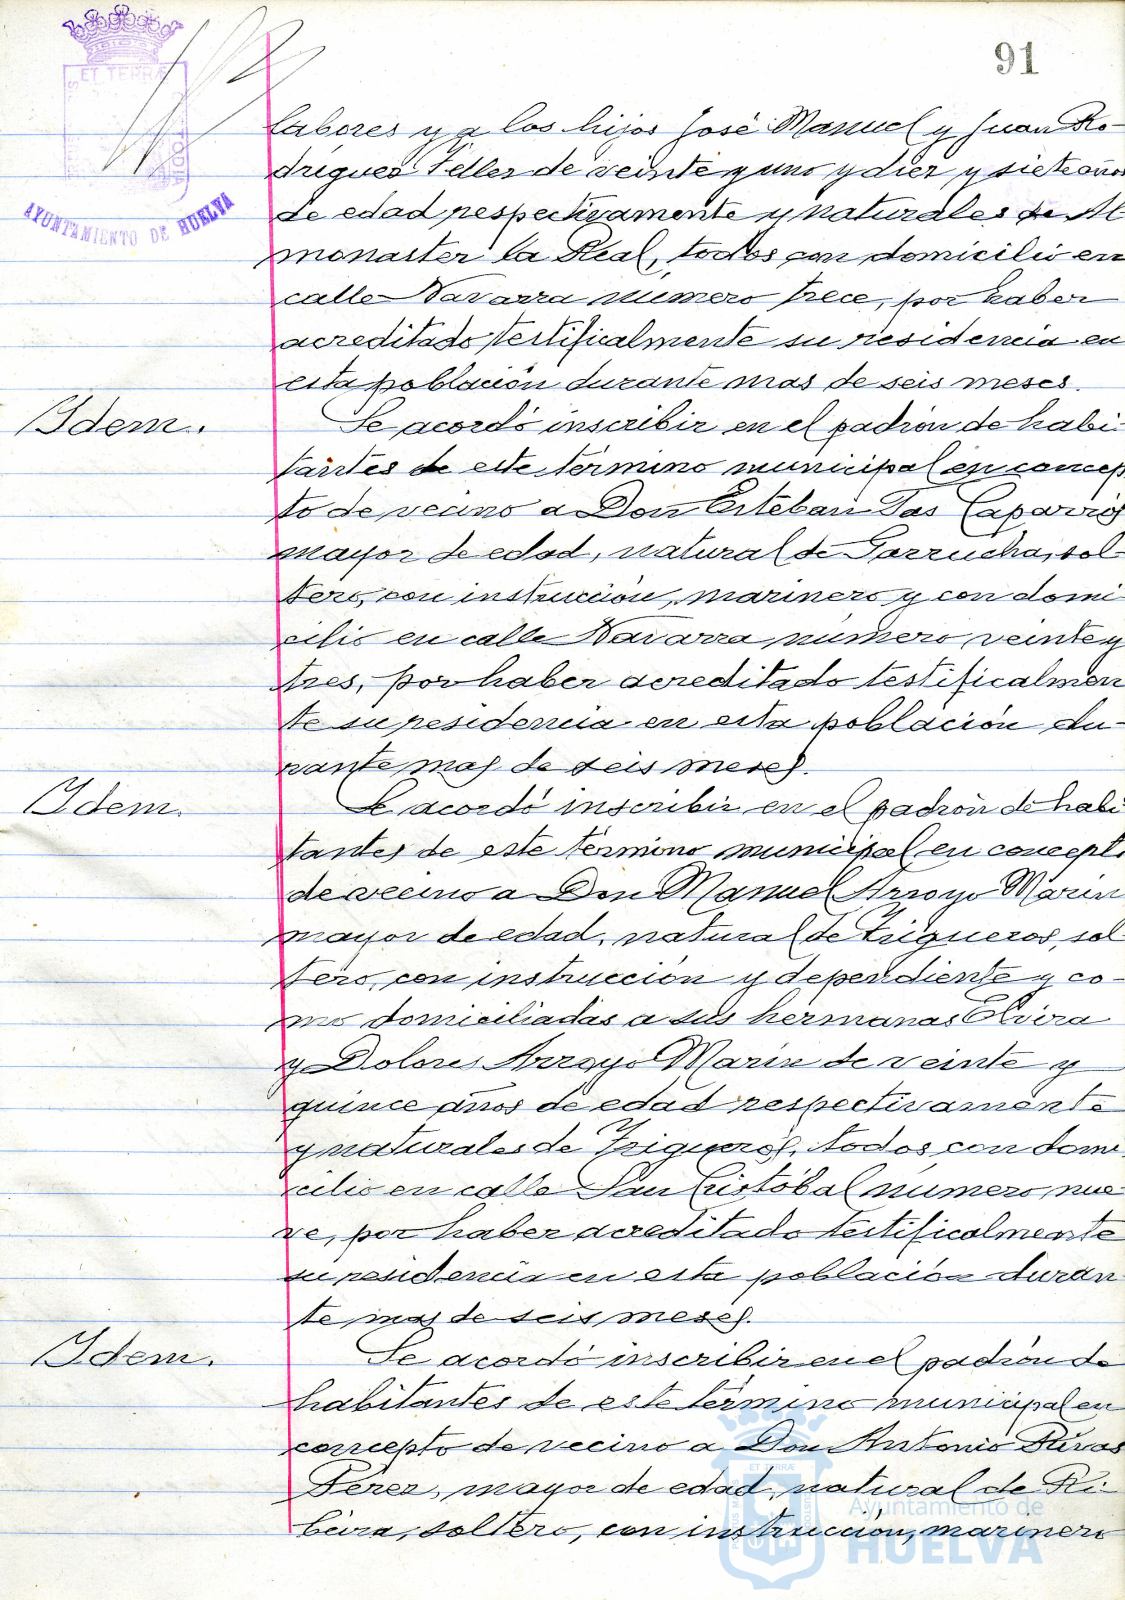 91
ET TERRÆ
AYUNTAMIENTO DE HUELVA
labores y a los hijos José Manuel y Juan Ro-
driguez Teller de veinte y uno y diez y siete años
de edad respectivamente y naturales de Al
monaster la Real, todos con domicilio en
calle Navarra número trece, por haber
acreditado testificalmente su residencia en
esta población durante mas de seis meses.
Idem.
Se acordó inscribir en el padrón de habi-
tantes de este término municipal en concep
to de vecino a Don Esteban Caparrós
mayor de edad, natural de Garrucha, sol-
tero, con instrucción, marinero y con domi-
cilio en calle Navarra número veinte y
tres, por haber acreditado testificalmen
te su residencia en esta población du-
rante mas de seis meses.
Idem.
Se acordó inscribir en el padrón de habi
tantes de este término municipal en concepto
de vecino a Don Manuel Arroyo Marin
mayor de edad, natural de Trigueros, sol-
tero, con instrucción y dependiente y co-
mo domiciliadas a sus hermanas Elvira
y Dolores Arroyo Marin de veinte y
quince años de edad respectivamente
y naturales de Trigueros, todos con domi-
cilio en calle San Cristóbal número nue-
ve, por haber acreditado testificalmente
su residencia en esta población duran
te mas de seis meses.
Idem.
Se acordó inscribir en el padrón de
habitantes de este término municipal en
concepto de vecino a Don Antonio Rivas
Pérez, mayor de edad, natural de Ri-
beira, soltero, con instrucción, marinero
Ayuntamiento de
HUELVA